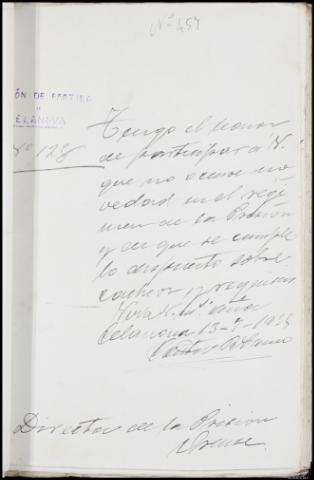 Nº 457
ÓN DE PARTIDO
ELANOVA
Nº 128
Tengo el honor
de participar a V.
que no ocurre no
vedad en el regi
men de la Prisión
y de que se cumple
lo dispuesto sobre
cacheos y requisas
Viva V. m.s años
Celanova 13-7-1935
Director de la Prision
Orense.